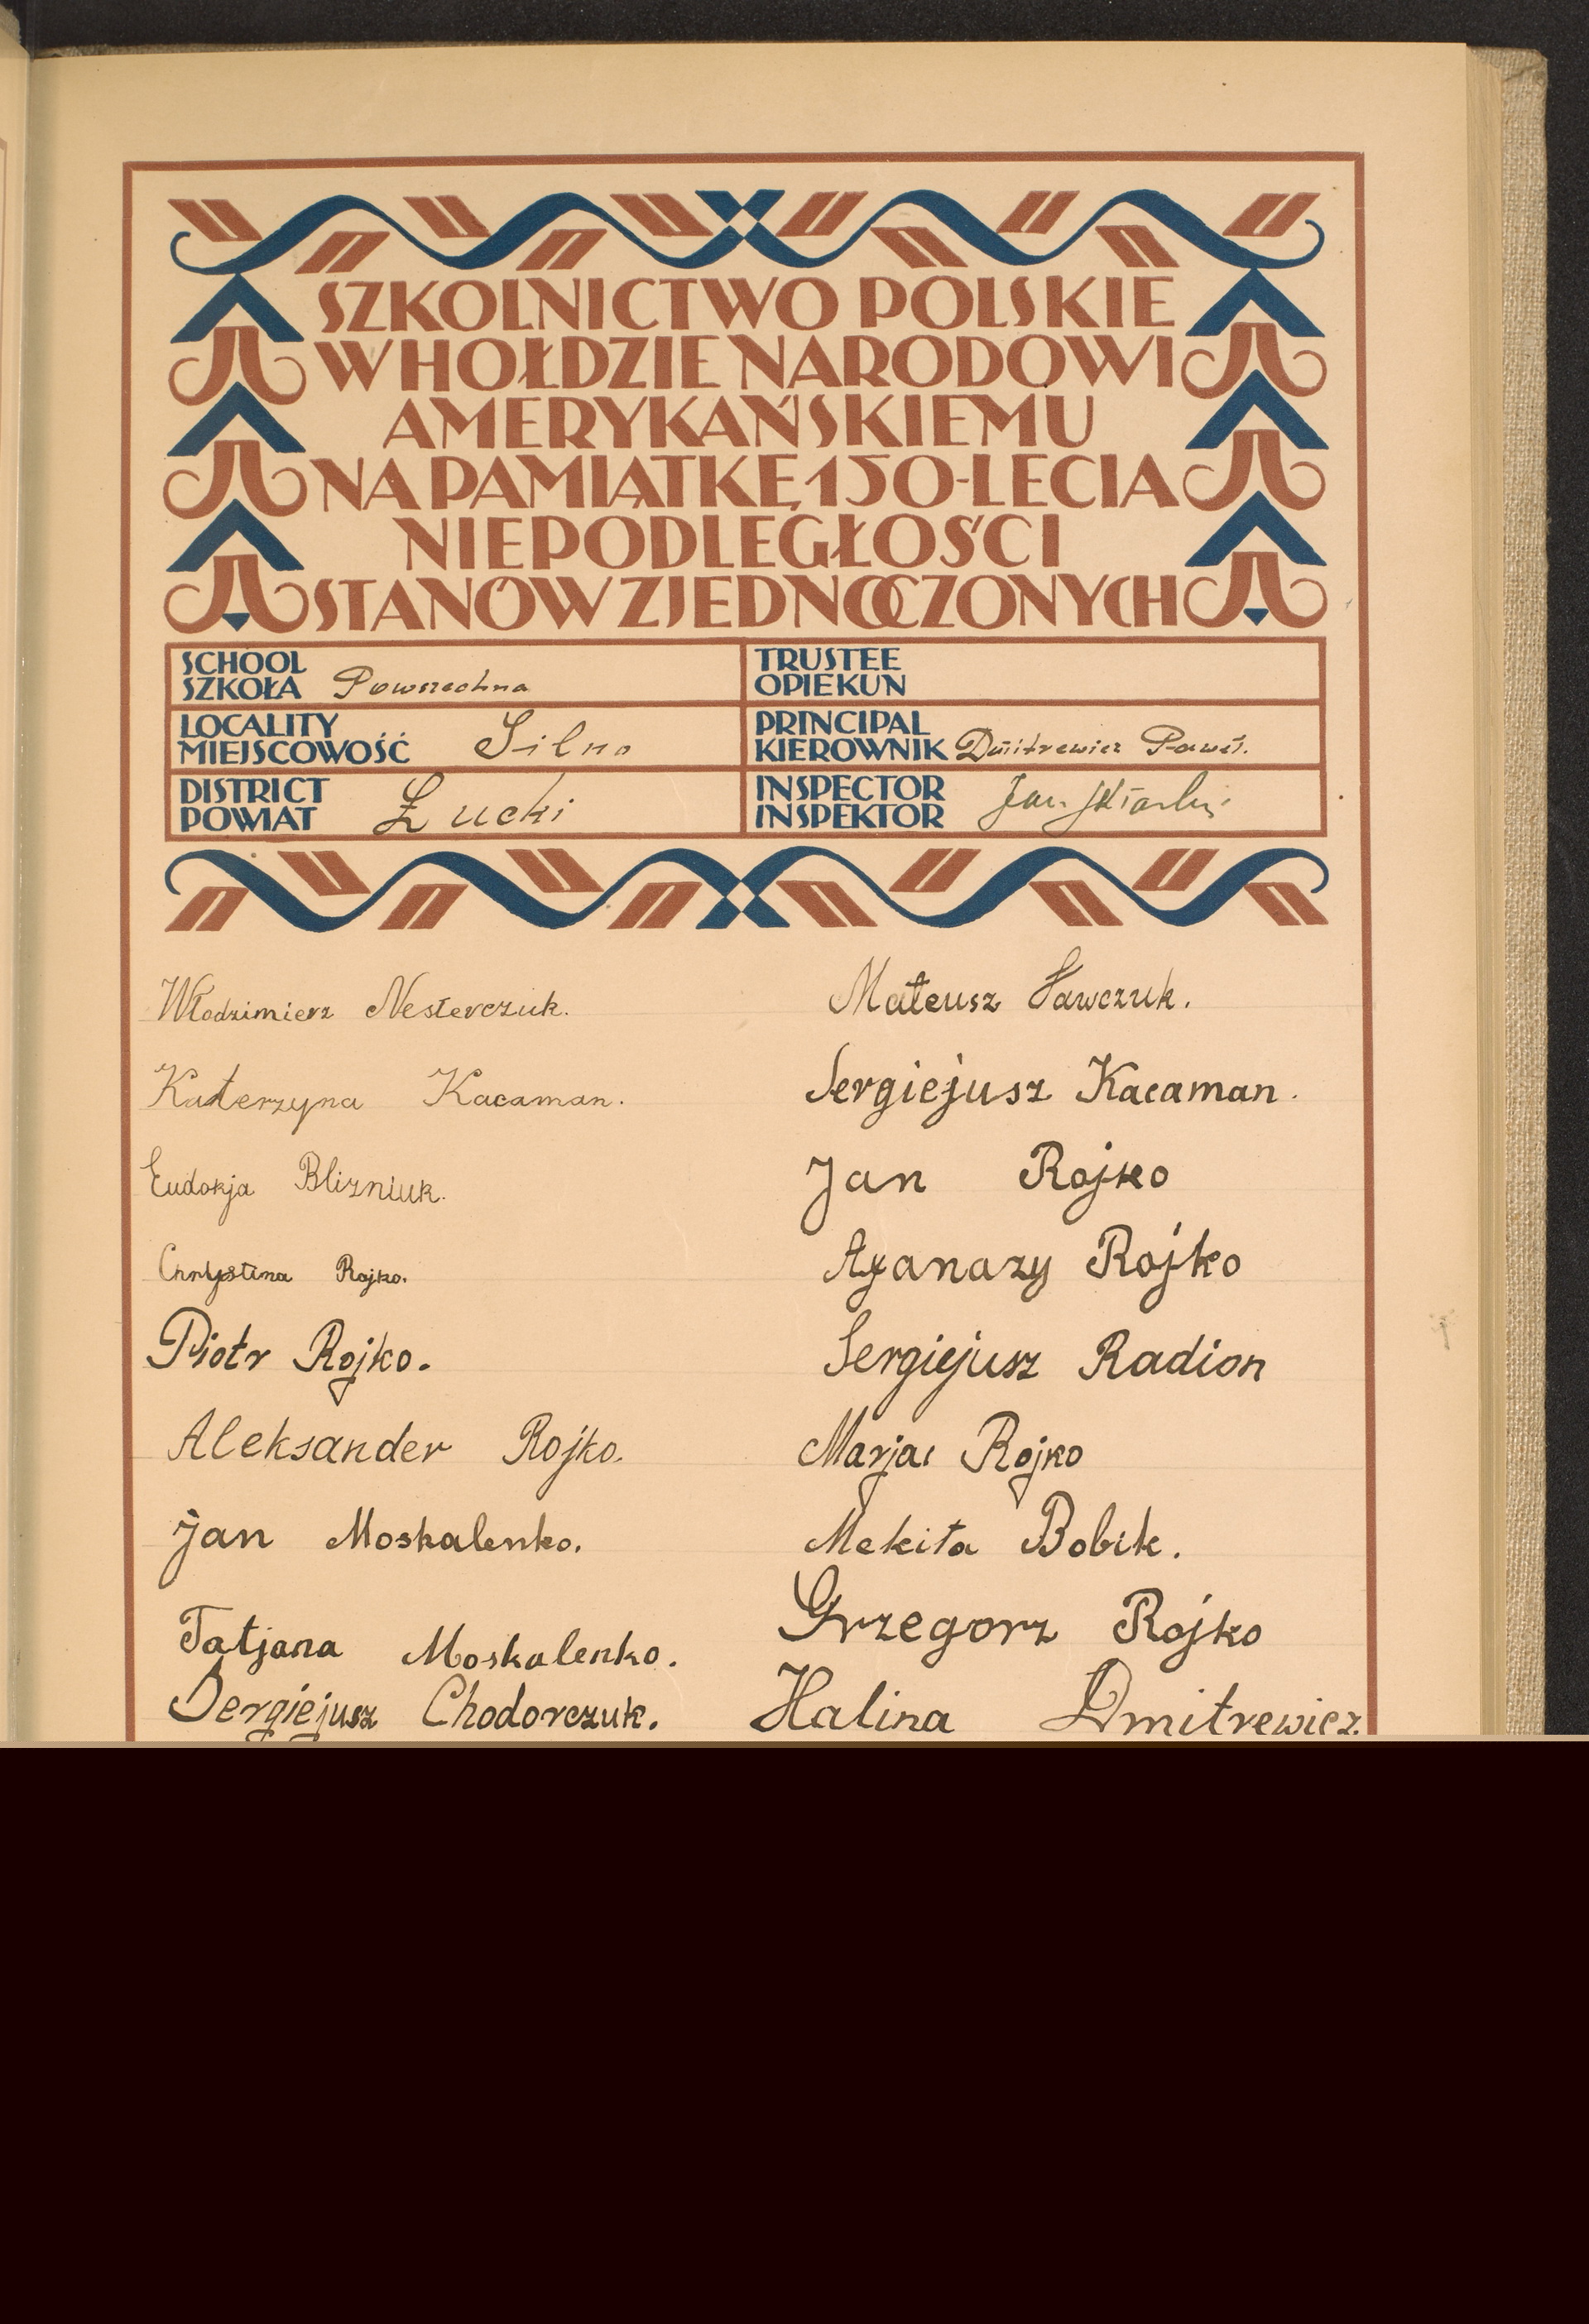 SZKOLNICTWO POLSKIE
W HOŁDZIE NARODOWI
AMERYKAŃSKIEMU
NA PAMIĄTKĘ 150-LECIA
NIEPODLEGŁOŚCI
STANÓW ZJEDNOCZONYCH
SCHOOL
SZKOŁA Powszechna
TRUSTEE
OPIEKUN
LOCALITY
MIEJSCOWOŚĆ Silno
PRINCIPAL
KIEROWNIK Dmitrewicz Paweł.
DISTRICT
POWIAT Łucki
INSPECTOR
INSPEKTOR Jan
Włodzimierz Nesterczuk.
Katerzyna Kacaman.
Eudokja Blizniuk.
Chrystina Rojko.
Piotr Rojko.
Aleksander Rojko.
Jan Moskalenko.
Tatjana Moskalenko.
Sergiejusz Chodorczuk.
Mateusz Sawczuk.
Sergiejusz Kacaman.
Jan Rojko
Afanazy Rojko
Sergiejusz Radion
Marja Rojko
Mekita Bobik.
Grzegorz Rojko
Halina Dmitrewicz.